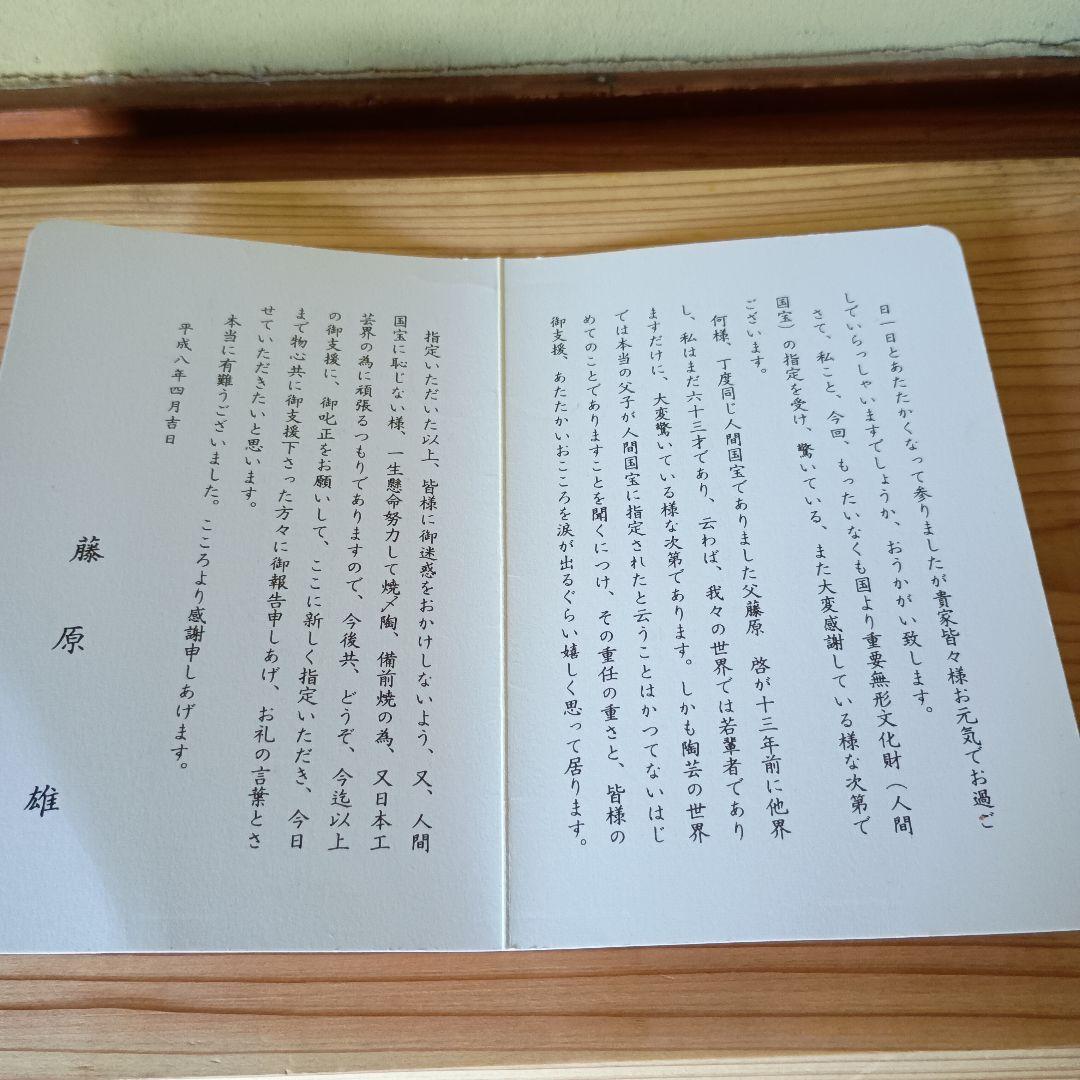 日一日とあたたかくなって参りましたが貴家皆々様お元気でお過ご
していらっしゃいますでしょうか、おうかがい致します。
さて、私こと、今回、もったいなくも国より重要無形文化財（人間
国宝）の指定を受け、驚いている、また大変感謝している様な次第で
ございます。
何様、丁度同じ人間国宝でありました父藤原　啓が十三年前に他界
し、私はまだ六十三才であり、云わば、我々の世界では若輩者であり
ますだけに、大変驚いている様な次第であります。しかも陶芸の世界
では本当の父子が人間国宝に指定されたと云うことはかつてないはじ
めてのことでありますことを聞くにつけ、その重任の重さと、皆様の
御支援、あたたかいおこころを涙が出るぐらい嬉しく思って居ります。
指定いただいた以上、皆様に御迷惑をおかけしないよう、又、人間
国宝に恥じない様、一生懸命努力して焼〆陶、備前焼の為、又日本工
芸界の為に頑張るつもりでありますので、今後共、どうぞ、今迄以上
の御支援に、御叱正をお願いして、ここに新しく指定いただき、今日
まで物心共に御支援下さった方々に御報告申しあげ、お礼の言葉とさ
せていただきたいと思います。
本当に有難うございました。こころより感謝申しあげます。
平成八年四月吉日
藤原　雄